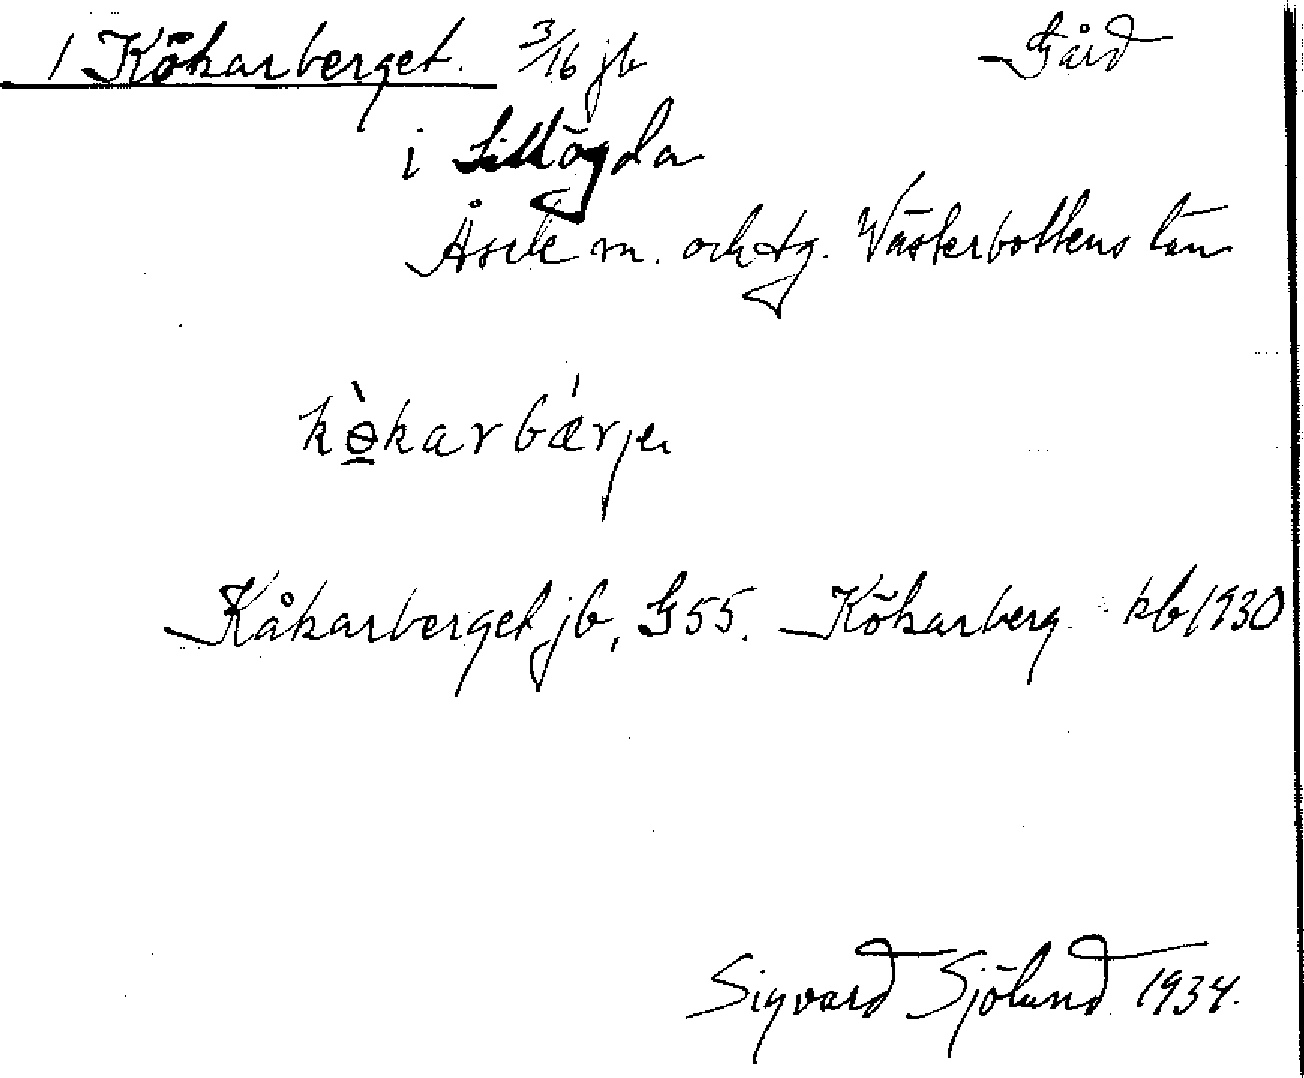 1 Kökarberget. 3/16 jb Gård
i Lillögda
Åsele sn. och tg. Västerbottens län
kö̀karbǽrje
Kåkarberget jb, G55. Kökarberg kb 1930
Sigvard Sjölund 1934.